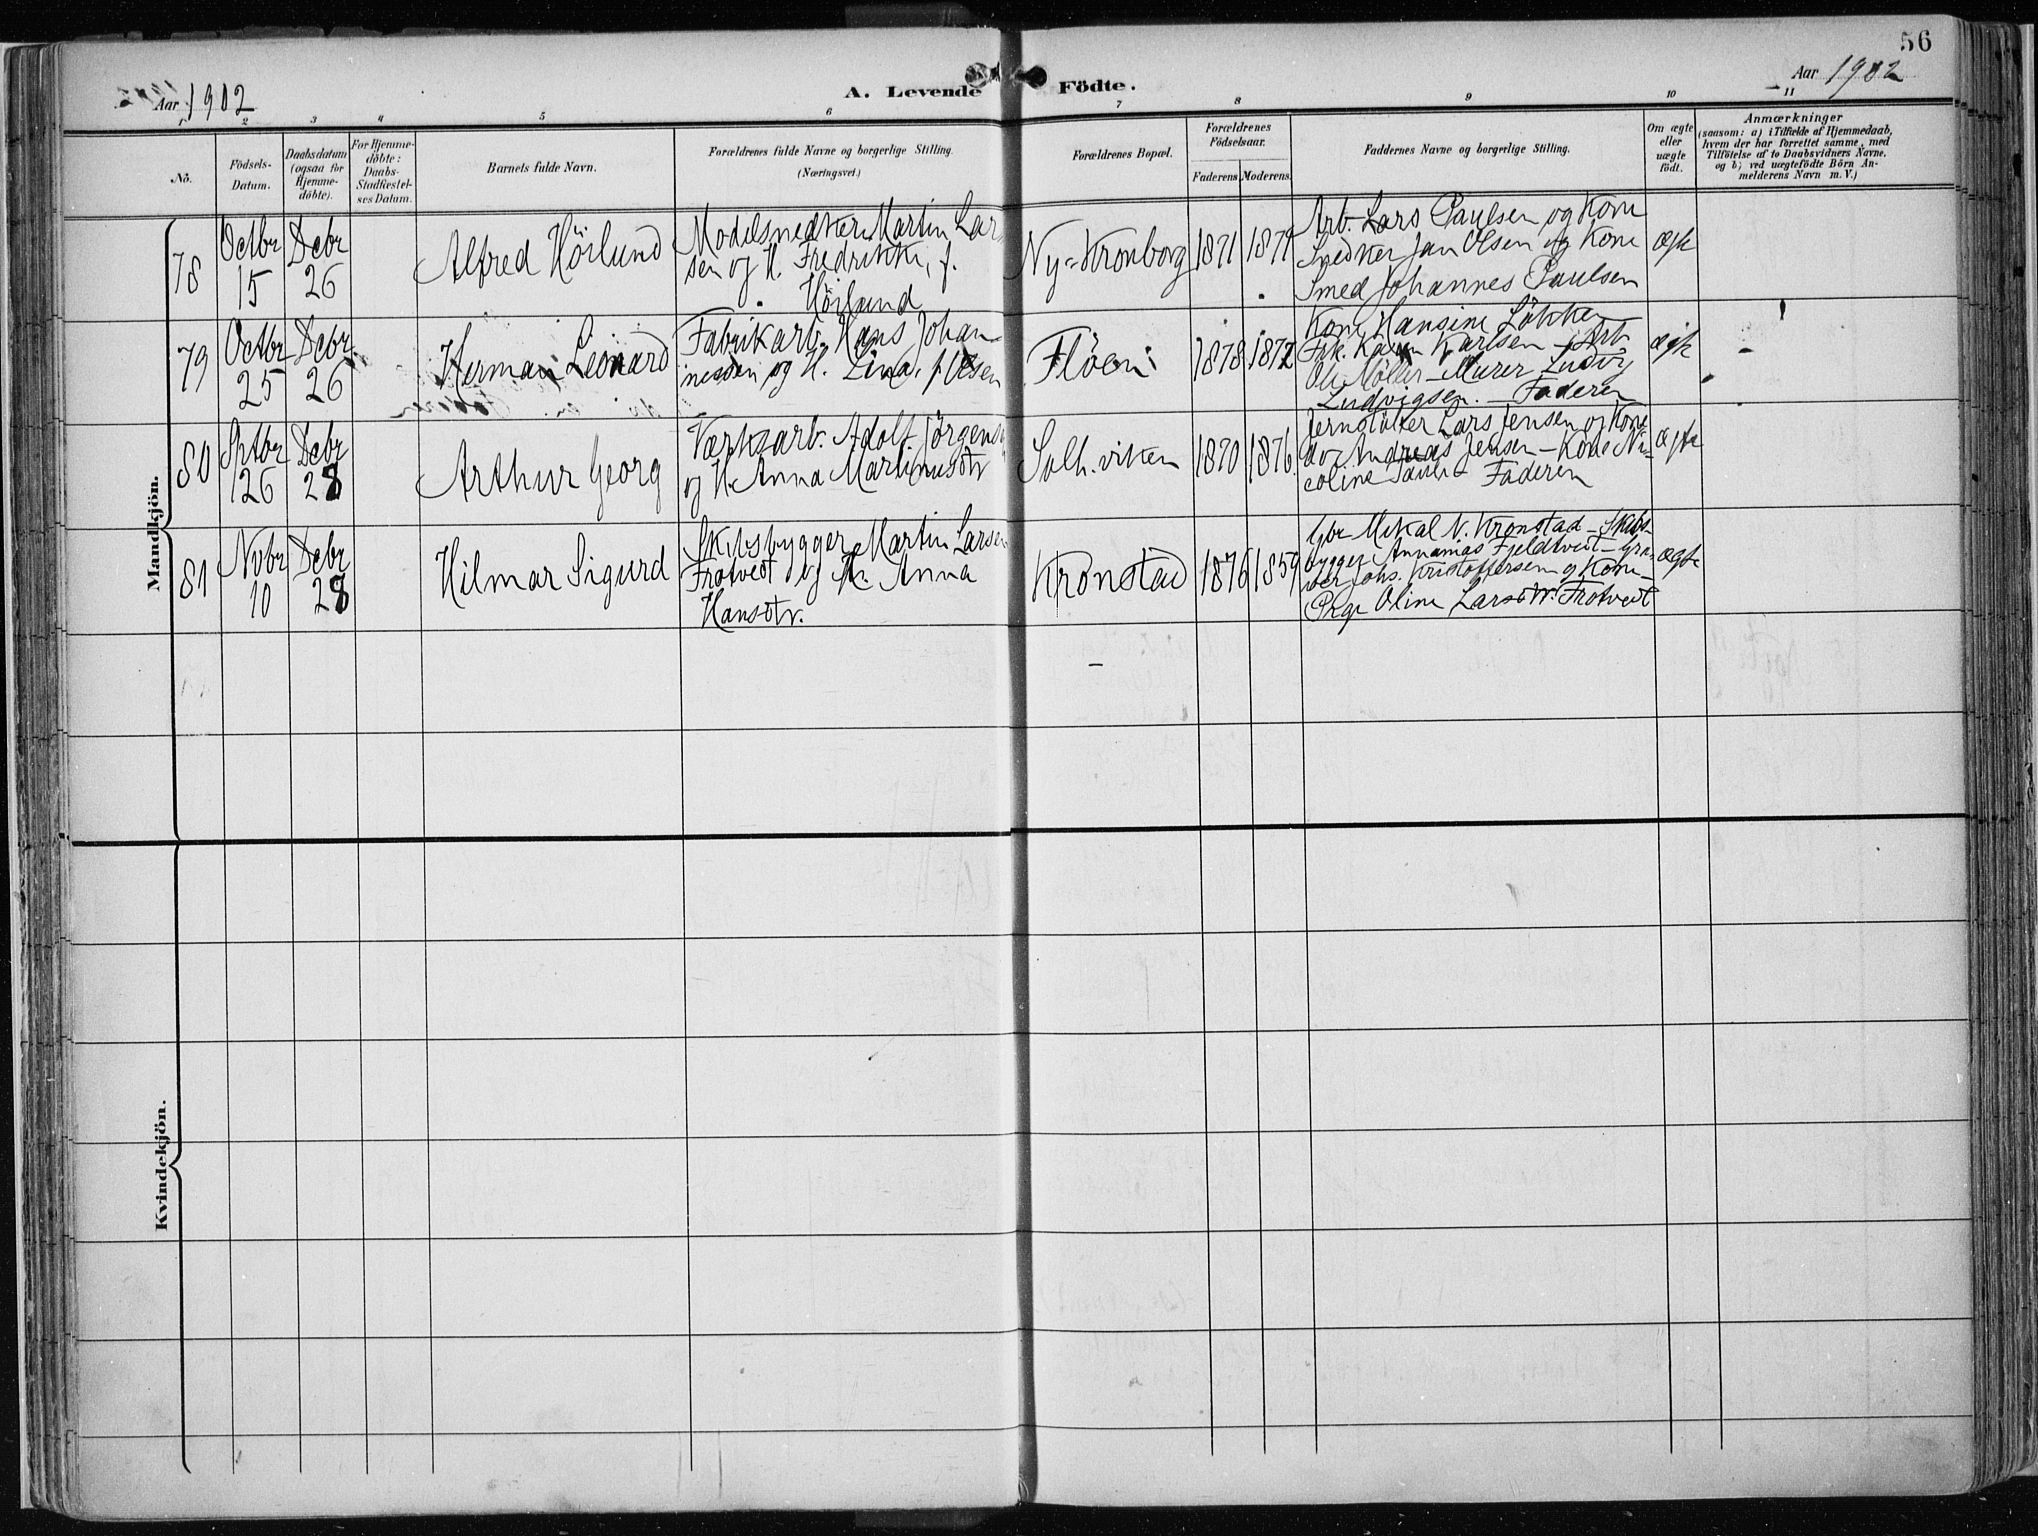 56
Aar 1902
A. Levende Födte.
Aar 1902
1 2 3 4 5 6 7 8 9 10 11
No.
Födsels-
Datum.
Daabsdatum
(ogsaa for
Hjemme-
döbte).
For Hjemme-
döbte:
Daabs-
Stadfæstel-
ses Datum.
Barnets fulde Navn.
Forældrenes fulde Navne og borgerlige Stilling.
(Næringsvei.)
Forældrenes Bopæl.
Forældrenes
Födselsaar.
Faderens. Moderens.
Faddernes Navne og borgerlige Stilling.
Om ægte
eller
uægte
födt.
Anmærkninger
(saasom: a) i Tilfælde af Hjemmedaab,
hvem der har forrettet samme, med
Tilföielse af to Daabsvidners Navne,
og b) ved uægtefödte Börn An-
melderens Navn m. V.)
Mandkjön.
78
Octbr
15
Decbr
26
Alfred Höilund
Modelsnedker Martin Lar
sen og H. Fredrikke, f.
Höilund
Ny-Kronborg
1871
1879
Arb. Lars Paulsen og Kone
Snedker Jan Olsen og Kone
Smed Johannes Paulsen
ægte
79
Octbr
25
Decbr
26
Herman Leonard
Fabrikarb. Hans Johan
nessen og H. Lina, f. Olsen
Flöen
1878
1872
Kone Hansine Lökken
Frk. Karen Karlsen - Arb
Ole Möller - Murer Ludvig
Ludvigsen. - Faderen
ægte
80
Septbr
26
Decbr
28
Arthur Georg
Værksarb. Adolf Jörgensen
og H. Anna Martinusdtr
Solh.viken
1870
1876
Lars Jensen og Kone
Andreas Jensen - Kone Ni-
coline
Faderen
ægte
81
Novbr
10
Decbr
28
Hilmar Sigurd
Skibsbygger Martin Larsen
Frotvedt og H. Anna
Hansdtr.
Kronstad
1876
1859
Gbr Mikal N. Kronstad - Skibs-
bygger Annanias Fjeldtvedt - Gra-
ver Johs. Kristoffersen og Kone -
Pige Oline Larsdtr. Frotvedt
ægte
Kvindekjön.